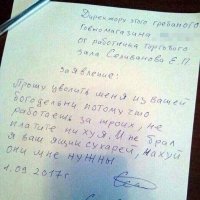 Директору этого гребаного
Говномагазина
от работника торгового
зала Селиванова Е.П.
Заявление:
Прошу уволить меня из вашей
богодельни потому что
работаешь за троих, не
платите ни хуя. И не брал
я ваш ящик сухарей, нахуй
они мне нужны
1.09.2017г.